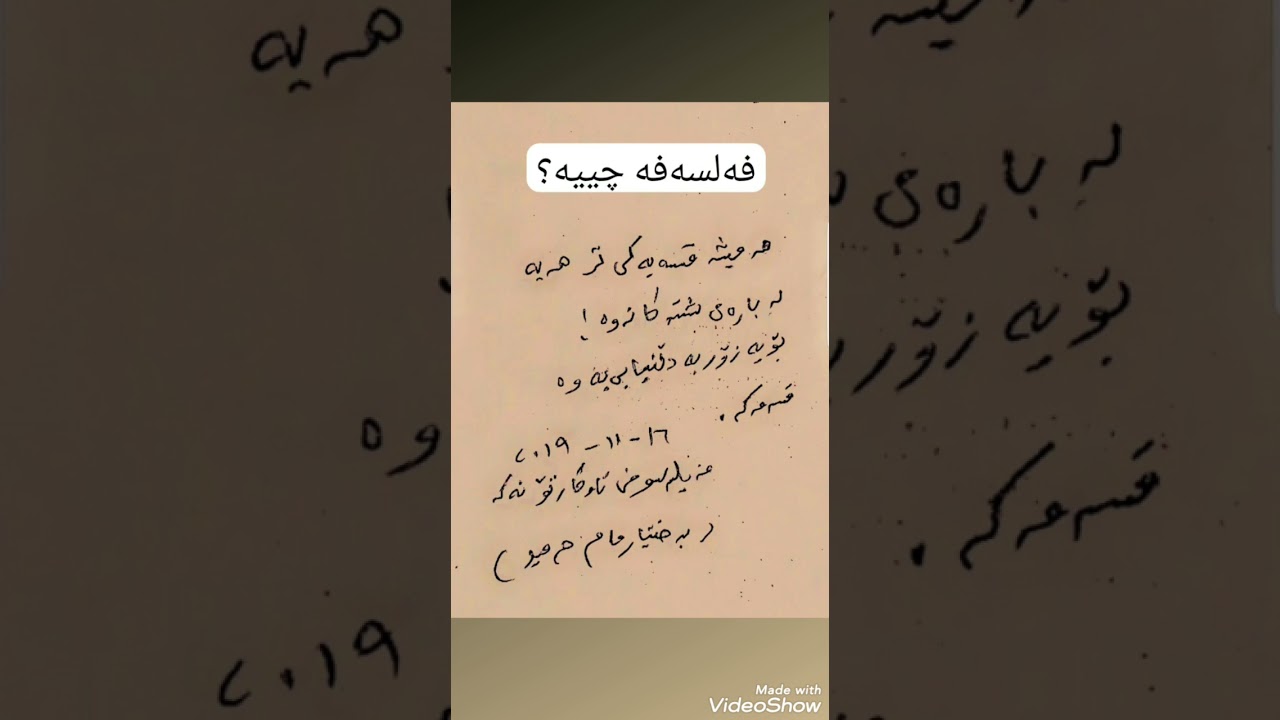 فەلسەفە چییە؟
هەمیشە قسەیەکی تر هەیە
لە بارەی شتە کانەوە !
بۆیە زۆر بە دڵنیاییەوە
قسە مەکە .
٢٠١٩ - ١١ - ١٦
فەیلەسوفی
نەکە
( بەختیار مام هەمیو )
Made with
VideoShow